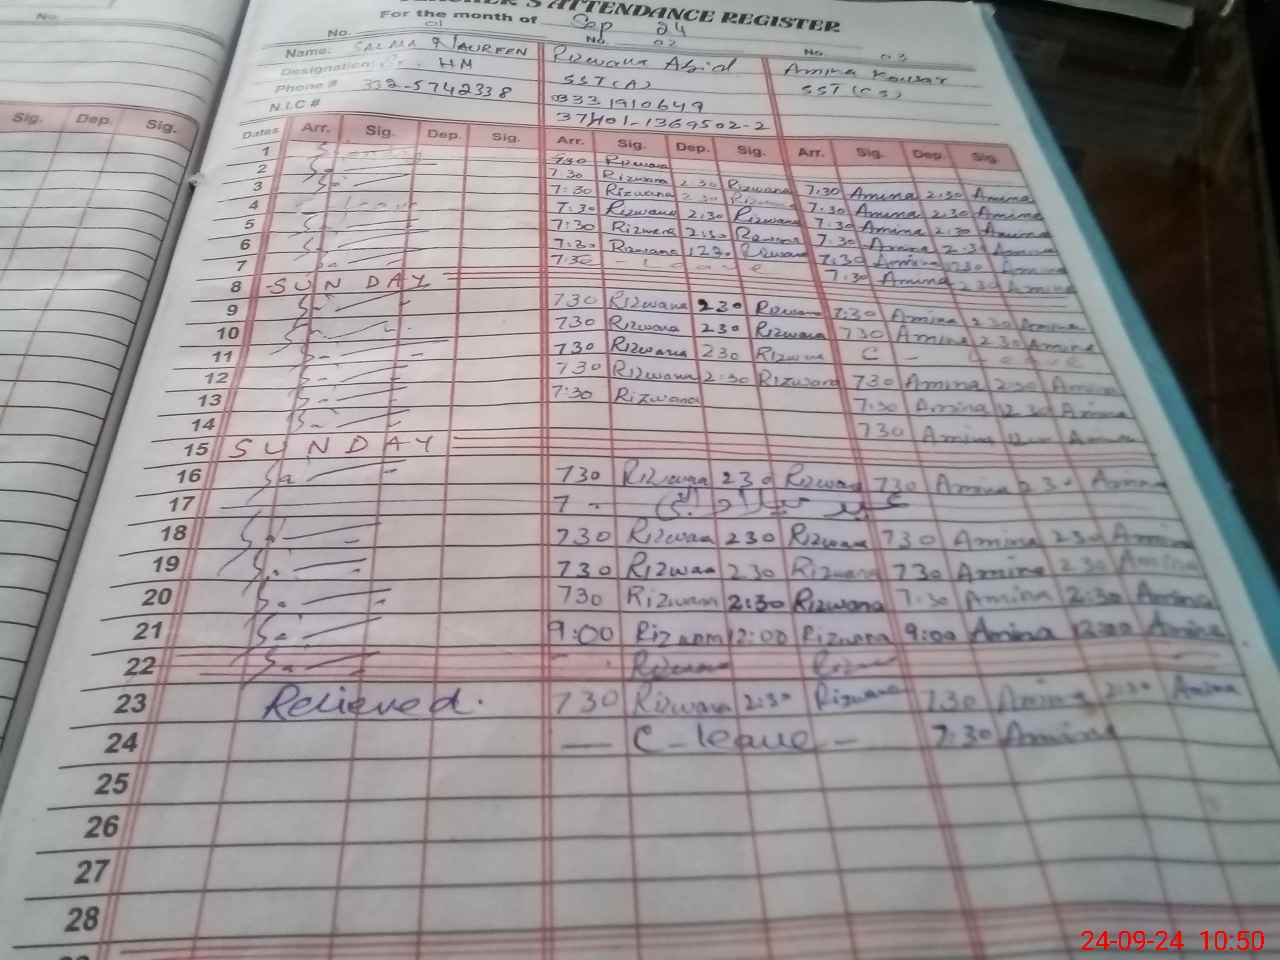 TEACHER'S ATTENDANCE REGISTER
For the month of Sep 24
No. 01 No. 02 No. 03
Name: SALMA NAUREEN Rizwana Abid Amina Kousar
Designation HM SST (A) SST (CS)
Phone # 332-5742338 0331910649
N.I.C # 37401-1369502-2
Sig. Dep. Sig. Dates Arr. Sig. Dep. Sig. Arr. Sig. Dep. Sig. Arr. Sig. Dep. Sig.
1
2 730 Rizwana
3 7.30 Rizwana 2:30 Rizwana 7.30 Amina 2:30 Amina
4 7:30 Rizwana 2:30 Rizwana 7.30 Amina 2.30 Amina
5 7:30 Rizwana 2:30 Rizwana 7.30 Amina 2:30 Amina
6 7:30 Rizwana 7:30 Amina
7 7:30 Amina 2:30 Amina
8 SUNDAY
9 730 Rizwana 230 Rizwana 7:30 Amina 230 Amina
10 730 Rizwana 230 Rizwana 730 Amina 230 Amina
11 730 Rizwana 230 Rizwana C - Leave
12 730 Rizwana 2:30 Rizwana 730 Amina 2:30 Amina
13 7:30 Rizwana 7:30 Amina 12 30 Amina
14 730 Amina Amina
15 SUNDAY
16 730 Rizwana 230 Rizwana 730 Amina 230 Amina
17 عید میلاد النبی
18 730 Rizwaa 230 Rizwana 730 Amina 230 Amina
19 730 Rizwaa 230 Rizwana 730 Amina 230 Amina
20 730 Rizwana 2:30 Rizwana 7:30 Amina 2:30 Amina
21 9:00 Rizwana 12:00 Rizwana 9:00 Amina 12:00 Amina
22 Rizwana
23 Relieved. 730 Rizwana 2:30 Rizwana 730 Amina 2:30 Amina
24 — C-leave - 7:30 Amina
25
26
27
28
24-09-24 10:50